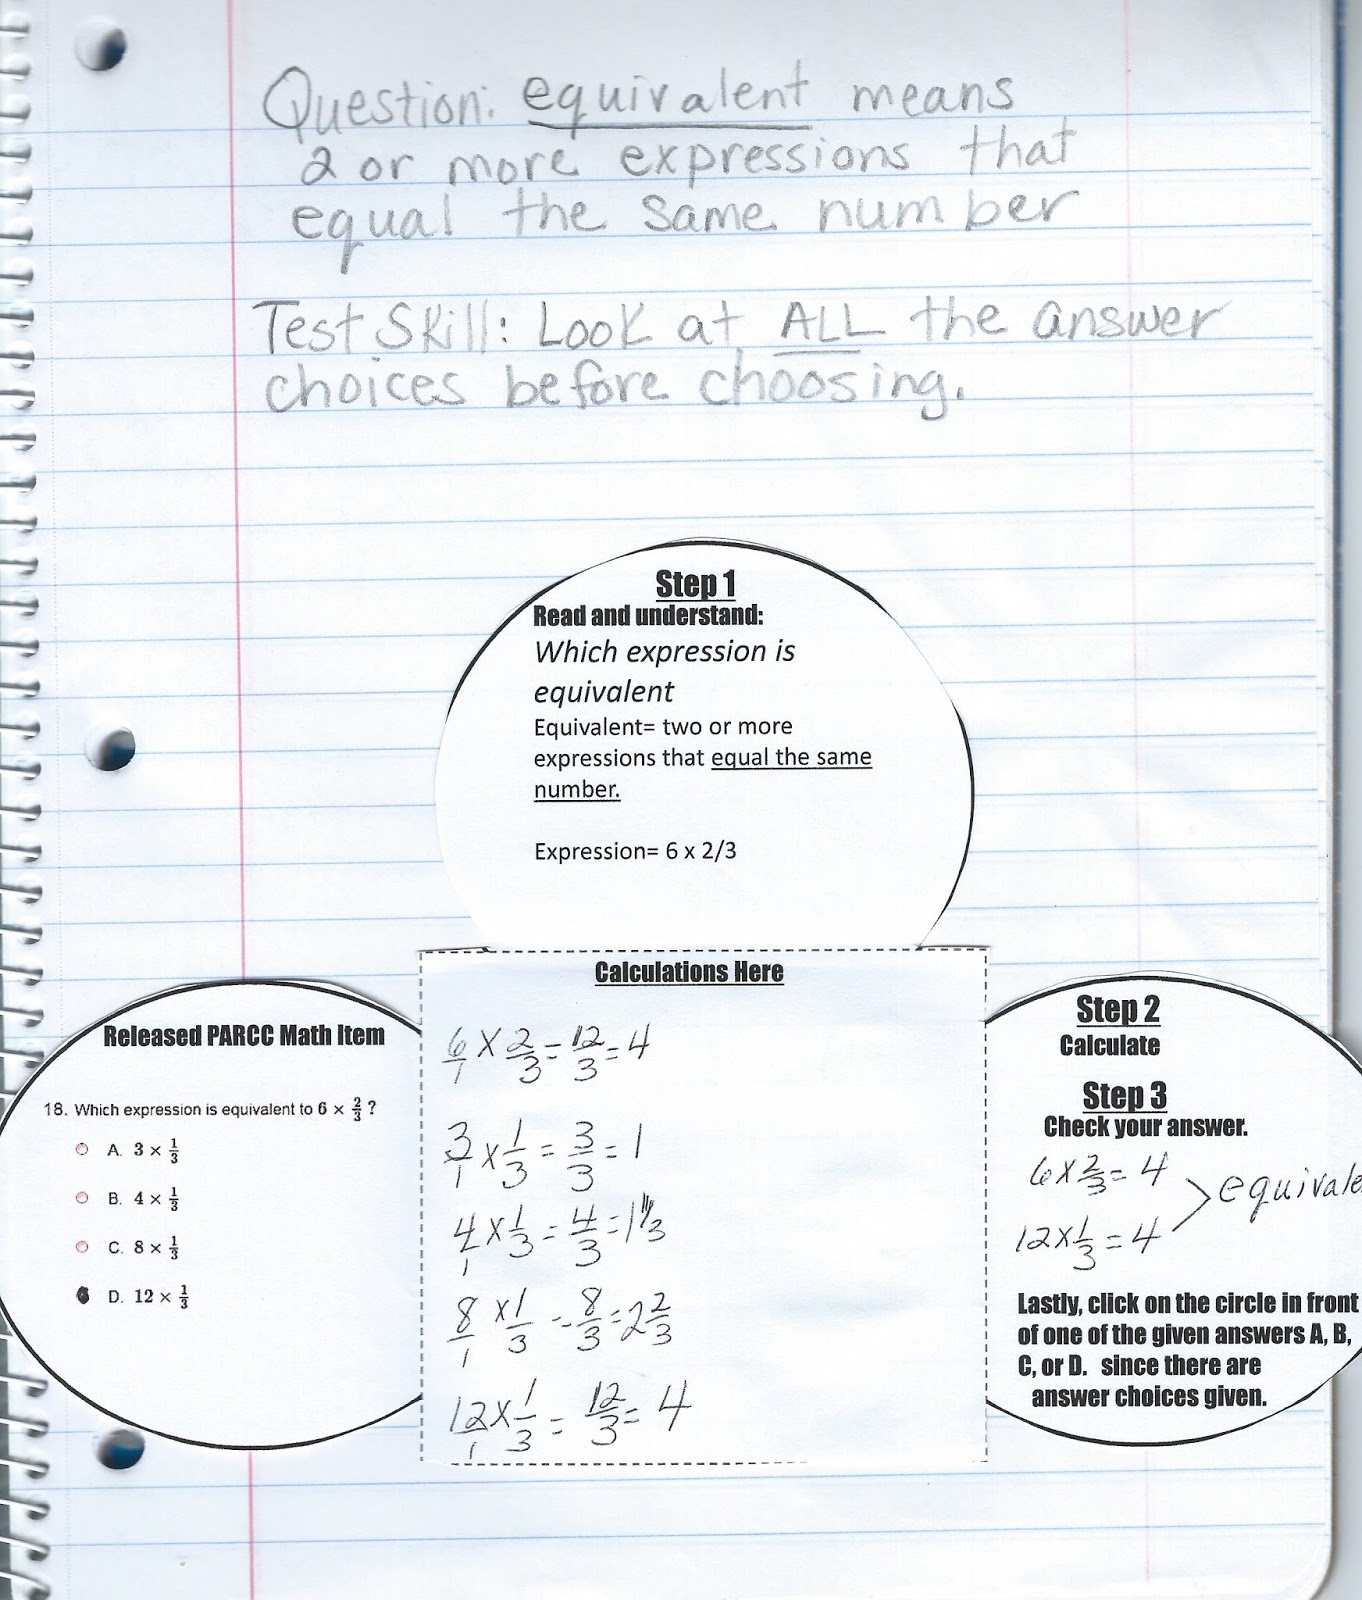 Question: equivalent means
2 or more expressions that
equal the same number
Test Skill: Look at ALL the answer
choices before choosing.
Step 1
Read and understand:
Which expression is
equivalent
Equivalent= two or more
expressions that equal the same
number.
Expression= 6 x 2/3
Released PARCC Math Item
18. Which expression is equivalent to 6 × 2/3 ?
A. 3 × 1/3
B. 4 × 1/3
C. 8 × 1/3
D. 12 × 1/3
Calculations Here
6/1 × 2/3 = 12/3 = 4
3/1 × 1/3 = 3/3 = 1
4/1 × 1/3 = 4/3 = 1 1/3
8/1 × 1/3 = 8/3 = 2 2/3
12/1 × 1/3 = 12/3 = 4
Step 2
Calculate
Step 3
Check your answer.
6 × 2/3 = 4
equivale
12 × 1/3 = 4
Lastly, click on the circle in front
of one of the given answers A, B,
C, or D. since there are
answer choices given.